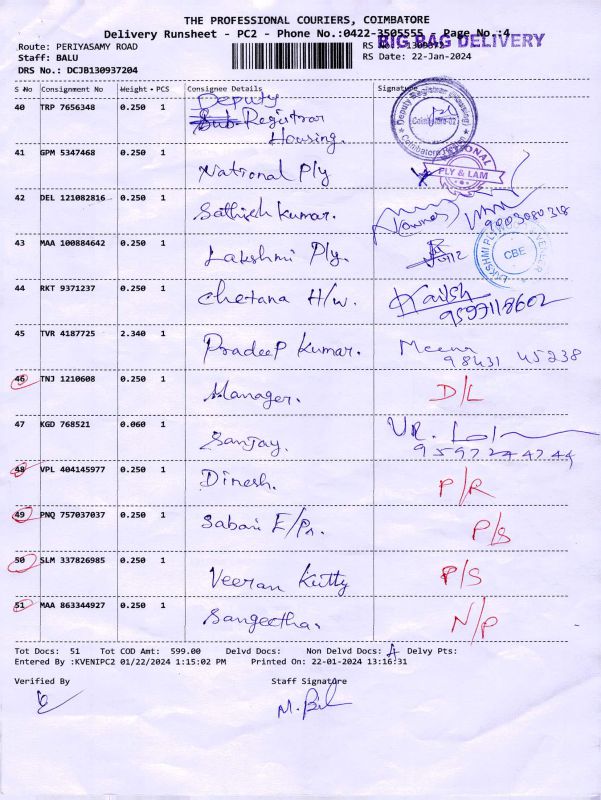 THE PROFESSIONAL COURIERS, COIMBATORE
Delivery Runsheet - PC2 - Phone No.:0422-3505555 Page No.:4
BIG BAG DELIVERY
Route: PERIYASAMY ROAD
RS No.:
Staff: BALU
RS Date: 22-Jan-2024
DRS No.: DCJB130937204
S No Consignment No Weight PCS Consignee Details Signature
40 TRP 7656348 0.250 1 Deputy
Sub Registrar
Housing.
Deputy Registrar (Housing)
Coimbatore Region
41 GPM 5347468 0.250 1 National Ply
NATIONAL
PLY & LAM
42 DEL 121082816 0.250 1 Sathish Kumar.
9003080318
43 MAA 100884642 0.250 1 Lakshmi Ply.
LAKSHMI PLY
CBE
44 RKT 9371237 0.250 1 Chetana H/w. Kailsh
9597118602
45 TVR 4187725 2.340 1 Pradeep Kumar. Meena
98431 45238
46 TNJ 1210608 0.250 1 Manager. D/L
47 KGD 768521 0.060 1 Sanjay.
9597244744
48 VPL 404145977 0.250 1 Dinesh. P/R
49 PNQ 757037037 0.250 1 Sabari E/Pr. P/S
50 SLM 337826985 0.250 1 Veeran Kutty P/S
51 MAA 863344927 0.250 1 Sangeetha. N/P
Tot Docs: 51 Tot COD Amt: 599.00 Delvd Docs: Non Delvd Docs: Delvy Pts:
Entered By :KVENIPC2 01/22/2024 1:15:02 PM Printed On: 22-01-2024 13:16:31
Verified By Staff Signature